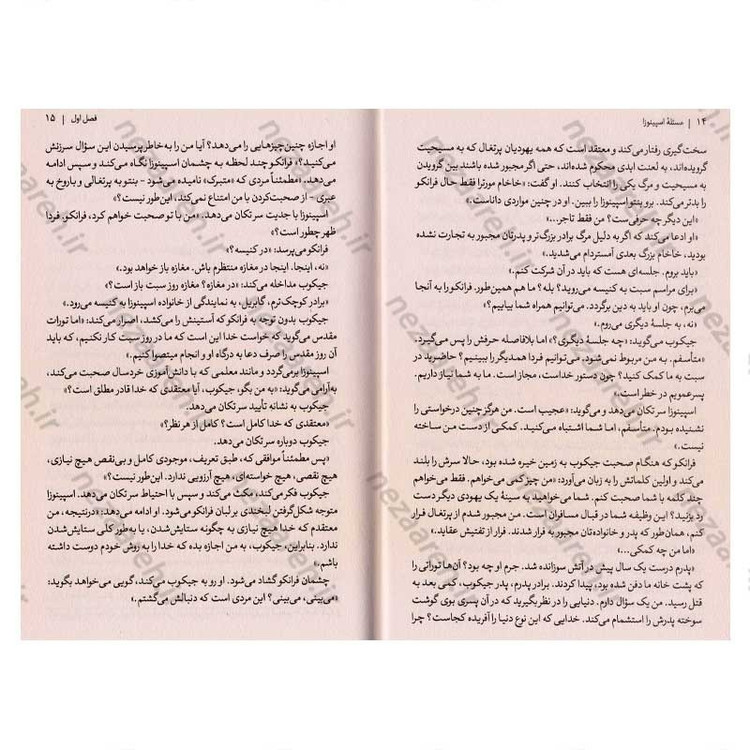 ۱۴ | مسئلهٔ اسپینوزا
سخت‌گیری رفتار می‌کند و معتقد است که همه یهودیان پرتغال که به مسیحیت
گرویده‌اند، به لعنت ابدی محکوم شده‌اند، حتی اگر مجبور شده باشند بین گرویدن
به مسیحیت و مرگ یکی را انتخاب کنند. او گفت: «خاخام مورترا فقط حال فرانکو
را بدتر می‌کند. برو بنتو اسپینوزا را ببین. او در چنین مواردی داناست.»
«این دیگر چه حرفی‌ست؟ من فقط تاجر...»
«او ادعا می‌کند که اگر به دلیل مرگ برادر بزرگ‌تر و پدرتان مجبور به تجارت نشده
بودید، خاخام بزرگ بعدی آمستردام می‌شدید.»
«باید بروم. جلسه‌ای هست که باید در آن شرکت کنم.»
«برای مراسم سبت به کنیسه می‌روید؟ بله؟ ما هم همین‌طور. فرانکو را به آنجا
می‌برم، چون او باید به دین برگردد. می‌توانیم همراه شما بیاییم؟»
«نه، به جلسهٔ دیگری می‌روم.»
جیکوب می‌گوید: «چه جلسهٔ دیگری؟» اما بلافاصله حرفش را پس می‌گیرد.
«متأسفم. به من مربوط نمی‌شود. می‌توانیم فردا همدیگر را ببینیم؟ حاضرید در
سبت به ما کمک کنید؟ چون دستور خداست، مجاز است. ما به شما نیاز داریم.
پسرعمویم در خطر است.»
اسپینوزا سر تکان می‌دهد و می‌گوید: «عجیب است. من هرگز چنین درخواستی را
نشنیده بودم. متأسفم، اما شما اشتباه می‌کنید. کمکی از دست من ساخته
نیست.»
فرانکو که هنگام صحبت جیکوب به زمین خیره شده بود، حالا سرش را بلند
می‌کند و اولین کلماتش را به زبان می‌آورد: «من چیز کمی می‌خواهم. فقط می‌خواهم
چند کلمه با شما صحبت کنم. شما می‌خواهید به سینهٔ یک یهودی دیگر دست
رد بزنید؟ این وظیفه شما در قبال مسافران است. من مجبور شدم از پرتغال فرار
کنم، همان‌طور که پدر و خانواده‌تان مجبور به فرار شدند. فرار از تفتیش عقاید.»
«اما من چه کمکی...»
«پدرم درست یک سال پیش در آتش سوزانده شد. جرم او چه بود؟ آن‌ها توراتی را
که پشت خانه ما دفن شده بود، پیدا کردند. برادر پدرم، پدر جیکوب، کمی بعد به
قتل رسید. من یک سؤال دارم. دنیایی را در نظر بگیرید که در آن پسری بوی گوشت
سوخته پدرش را استشمام می‌کند. خدایی که این نوع دنیا را آفریده کجاست؟ چرا
فصل اول | ۱۵
او اجازه چنین چیزهایی را می‌دهد؟ آیا من را به خاطر پرسیدن این سؤال سرزنش
می‌کنید؟» فرانکو چند لحظه به چشمان اسپینوزا نگاه می‌کند و سپس ادامه
می‌دهد. «مطمئناً مردی که «متبرک» نامیده می‌شود – بنتو به پرتغالی و باروخ به
عبری – از صحبت‌کردن با من امتناع نمی‌کند، این‌طور نیست؟»
اسپینوزا با جدیت سر تکان می‌دهد. «من با تو صحبت خواهم کرد، فرانکو. فردا
ظهر چطور است؟»
فرانکو می‌پرسد: «در کنیسه؟»
«نه، اینجا. اینجا در مغازه منتظرم باش. مغازه باز خواهد بود.»
جیکوب مداخله می‌کند: «در مغازه؟ مغازه روز سبت باز است؟»
«برادر کوچک‌ترم، گابریل، به نمایندگی از خانواده اسپینوزا به کنیسه می‌رود.»
جیکوب بدون توجه به فرانکو که آستینش را می‌کشد، اصرار می‌کند: «اما تورات
مقدس می‌گوید که خواست خدا این است که ما در روز سبت کار نکنیم، که باید
آن روز مقدس را صرف دعا به درگاه او و انجام میتصوا کنیم.»
اسپینوزا برمی‌گردد و مانند معلمی که با دانش‌آموزی خردسال صحبت می‌کند،
به‌آرامی می‌گوید: «به من بگو، جیکوب، آیا معتقدی که خدا قادر مطلق است؟»
جیکوب به نشانه تأیید سر تکان می‌دهد.
«معتقدی که خدا کامل است؟ کامل از هر نظر؟»
جیکوب دوباره سر تکان می‌دهد.
«پس مطمئناً موافقی که، طبق تعریف، موجودی کامل و بی‌نقص هیچ نیازی،
هیچ نقصی، هیچ خواسته‌ای، هیچ آرزویی ندارد. این‌طور نیست؟»
جیکوب فکر می‌کند، مکث می‌کند و سپس با احتیاط سر تکان می‌دهد. اسپینوزا
متوجه شکل‌گرفتن لبخندی بر لبان فرانکو می‌شود. او ادامه می‌دهد: «درنتیجه، من
معتقدم که خدا هیچ نیازی به چگونه ستایش‌شدن، یا به‌طور کلی ستایش‌شدن
ندارد. بنابراین، جیکوب، به من اجازه بده که خدا را به روش خودم دوست داشته
باشم.»
چشمان فرانکو گشاد می‌شود. او رو به جیکوب می‌کند، گویی می‌خواهد بگوید:
«می‌بینی، می‌بینی؟ این مردی است که دنبالش می‌گشتم.»
nezaareh.ir